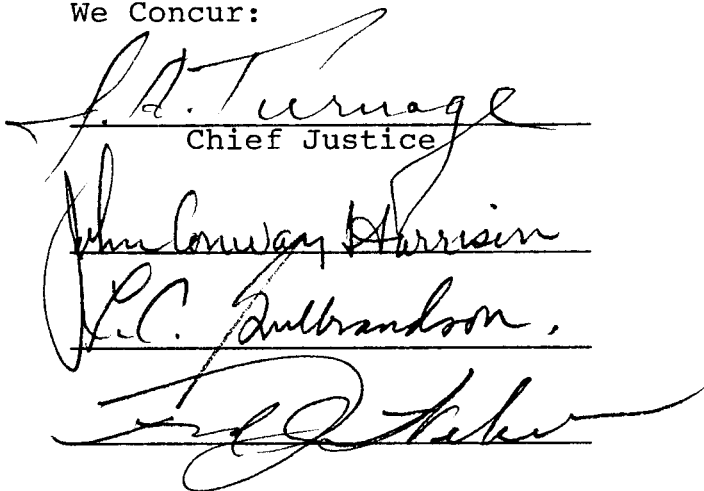 We Concur:
J. A. Turnage
Chief Justice
John Conway Harrison
L.C. Gulbrandson.